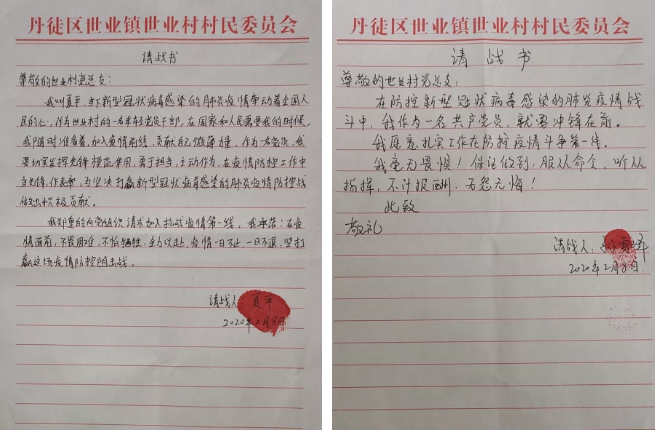 丹徒区世业镇世业村村民委员会
请战书
尊敬的世业村党总支：
我叫夏平，当下新型冠状病毒感染的肺炎疫情牵动着全国人
民的心，作为世业村的一名年轻党员干部，在国家和人民需要我的时候，
我随时准备着，加入疫情前线，贡献自己微薄力量，作为一名党员，我
要切实发挥先锋模范作用，勇于担当，主动作为，在疫情防控工作中
当先锋，作表率，为坚决打赢新型冠状病毒感染的肺炎疫情防控战
做出积极贡献。
我郑重的向党组织请求加入抗战疫情第一线，我承诺：在疫
情面前，不畏困难，不怕牺牲，全力以赴，疫情一日不止，一日不退，坚打
赢这场疫情防控阻击战。
请战人：夏平
2020年2月8日
丹徒区世业镇世业村村民委员会
请战书
尊敬的世业村党总支：
在防控新型冠状病毒感染的肺炎疫情战
斗中，我作为一名共产党员，就要冲锋在前。
我愿意扎实工作在防控疫情斗争第一线。
我毫无畏惧！保证做到，服从命令，听从
指挥，不计报酬，无怨无悔！
此致
敬礼
请战人：
2020年2月8日